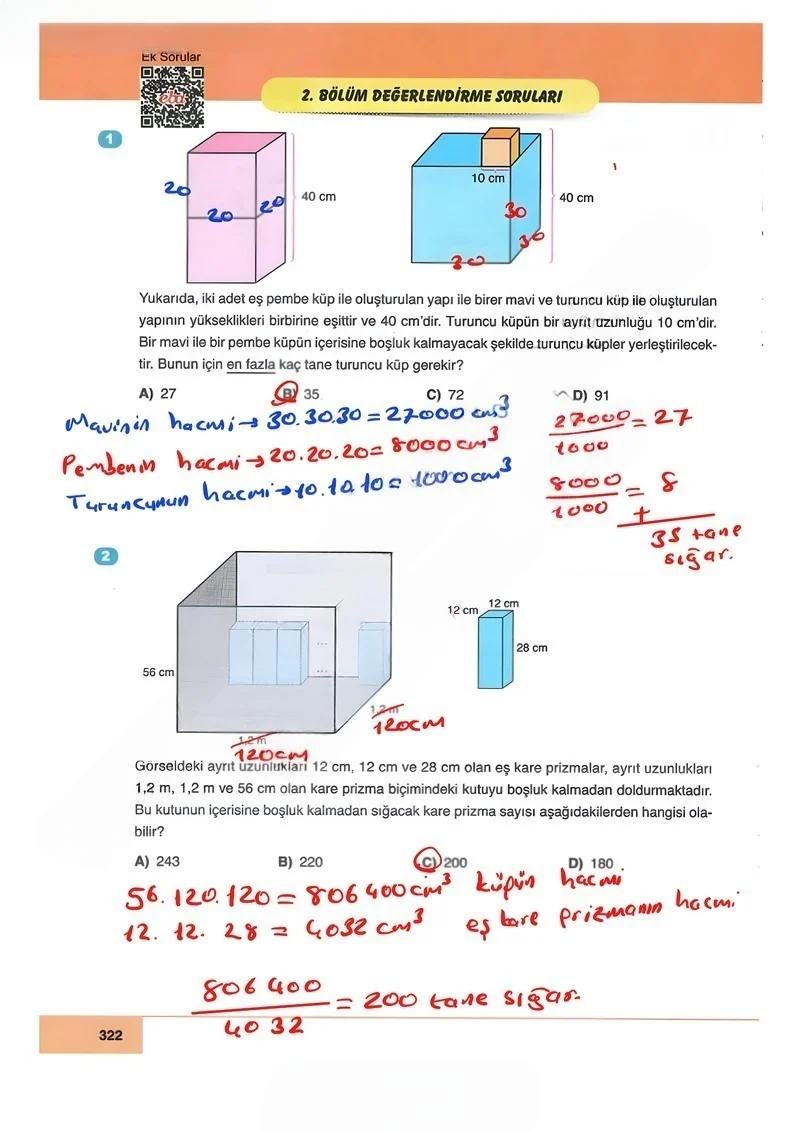 Ek Sorular
eba
2. BÖLÜM DEĞERLENDİRME SORULARI
1
20
20
20
40 cm
10 cm
30
30
30
40 cm
Yukarıda, iki adet eş pembe küp ile oluşturulan yapı ile birer mavi ve turuncu küp ile oluşturulan
yapının yükseklikleri birbirine eşittir ve 40 cm'dir. Turuncu küpün bir ayrıt uzunluğu 10 cm'dir.
Bir mavi ile bir pembe küpün içerisine boşluk kalmayacak şekilde turuncu küpler yerleştirilecek-
tir. Bunun için en fazla kaç tane turuncu küp gerekir?
A) 27 B) 35 C) 72 D) 91
Mavinin hacmi → 30.30.30 = 27000 cm³
Pembenin hacmi → 20.20.20 = 8000 cm³
Turuncunun hacmi → 10.10.10 = 1000 cm³
27000/1000 = 27
8000/1000 = 8
+
35 tane
sığar.
2
56 cm
1,2 m
120cm
1,2 m
120cm
12 cm
12 cm
28 cm
Görseldeki ayrıt uzunlukları 12 cm, 12 cm ve 28 cm olan eş kare prizmalar, ayrıt uzunlukları
1,2 m, 1,2 m ve 56 cm olan kare prizma biçimindeki kutuyu boşluk kalmadan doldurmaktadır.
Bu kutunun içerisine boşluk kalmadan sığacak kare prizma sayısı aşağıdakilerden hangisi ola-
bilir?
A) 243 B) 220 C) 200 D) 180
56.120.120 = 806400 cm³ küpün hacmi
12. 12. 28 = 4032 cm³ eş kare prizmanın hacmi
806400/4032 = 200 tane sığar.
322